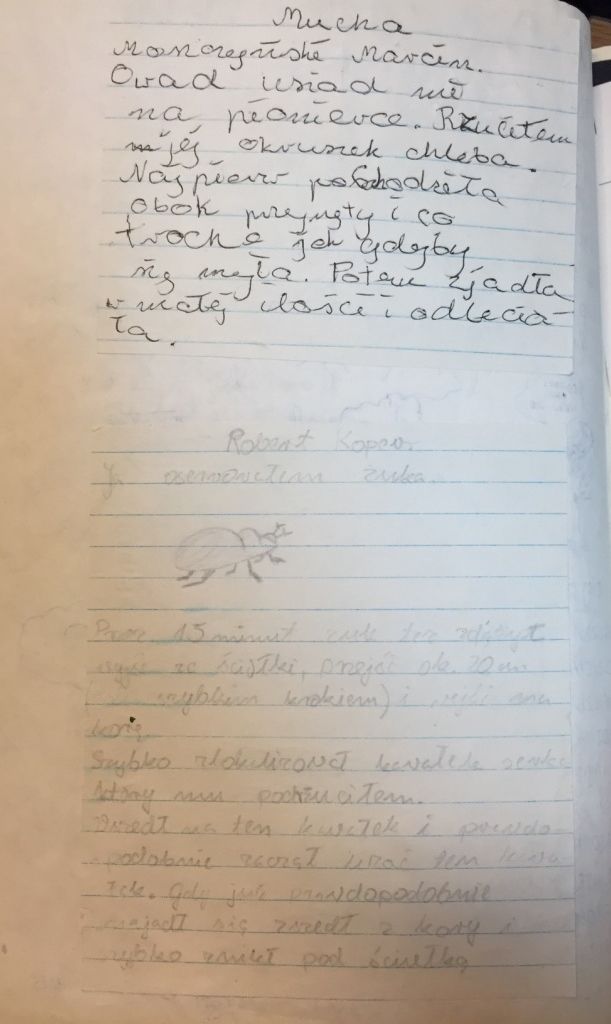 Mucha
Marcin.
Owad usiad mi
na pióniérce. Rzuciłem
jéj okruszek chleba.
Najpierw pochodziła
obok przynęty i co
trochę jak gdyby
się myła. Potem zjadła
w małej ilości i odlecia-
ła.
Robert
Ja oserwowałem żuka.
15 minut żuk ten zdążył
ze ściółki, przejść ok. 20 cm
szybkim krokiem) i na
korę.
Szybko zlokalizował kawałek
który mu podrzuciłem.
na ten kawałek i prawdo-
podobnie zaczął ten kawa-
łek. Gdy już prawdopodobnie
najadł się zszedł z kory i
szybko znikł pod ściółką